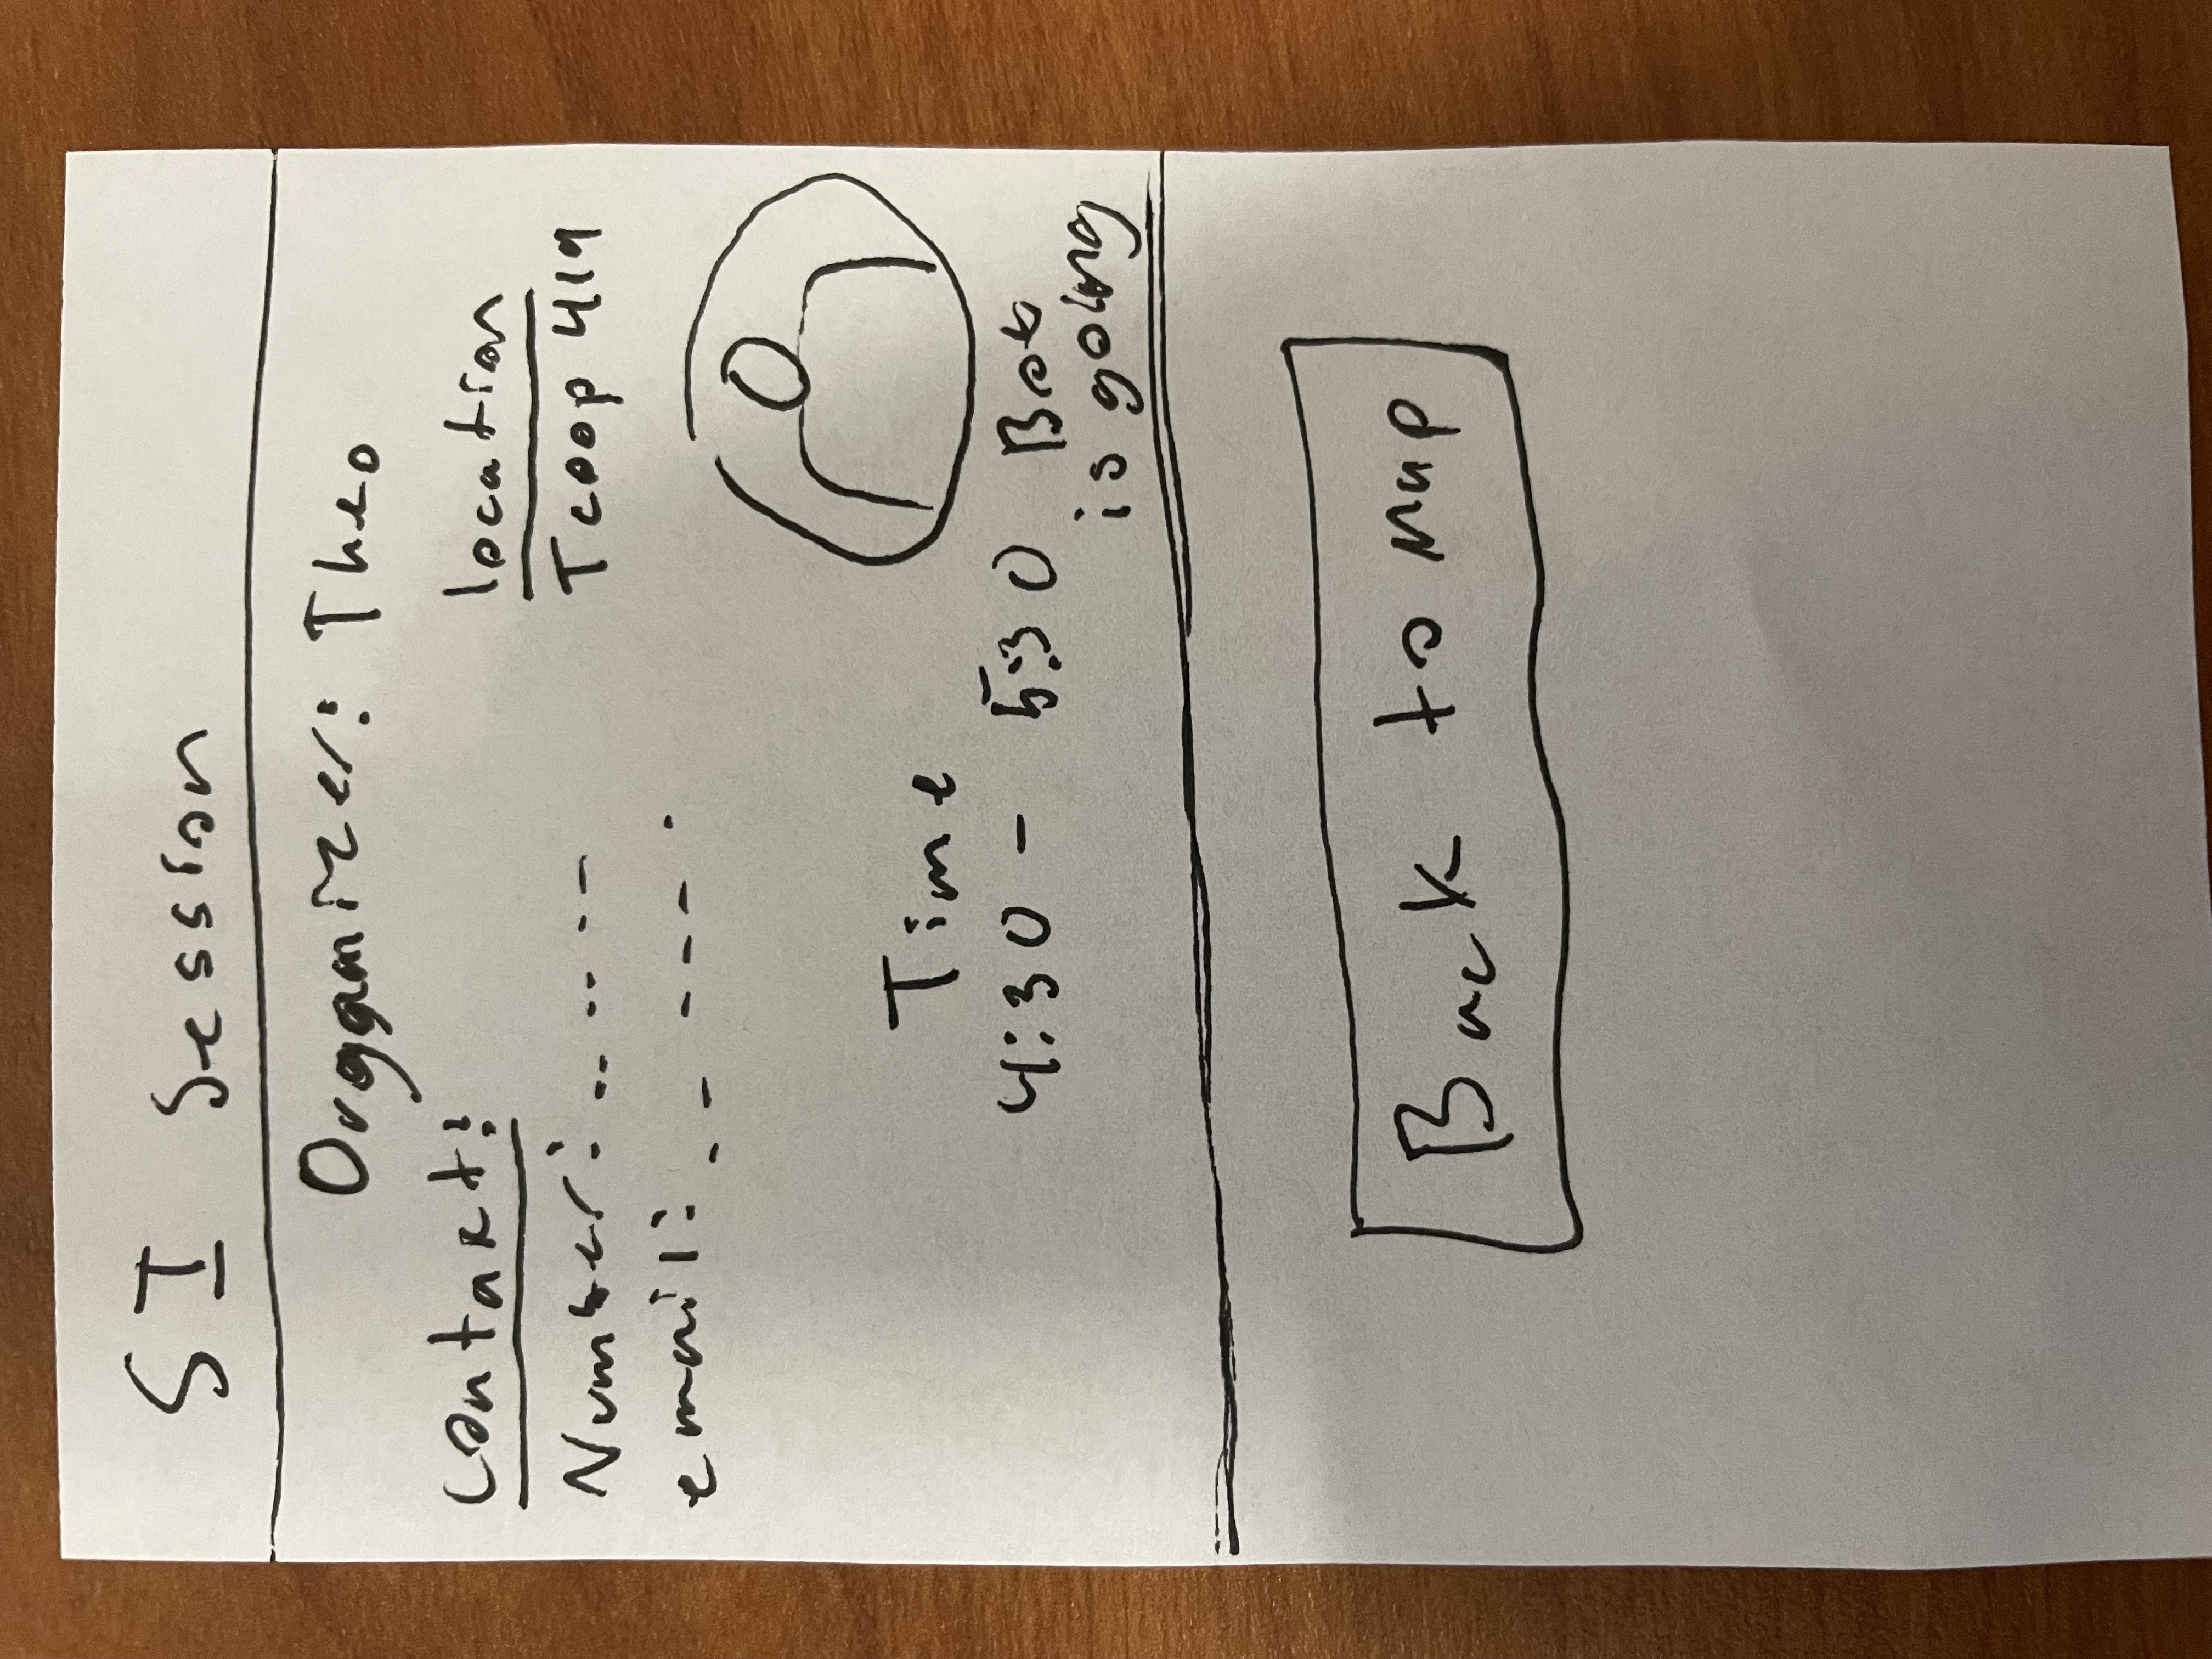 SI Session
Organizer: Theo
Contact:
Number: .. .. - --
email: - - --- .
location
Tcoop 419
Time
4:30 - 5:30
is going
Back to Map